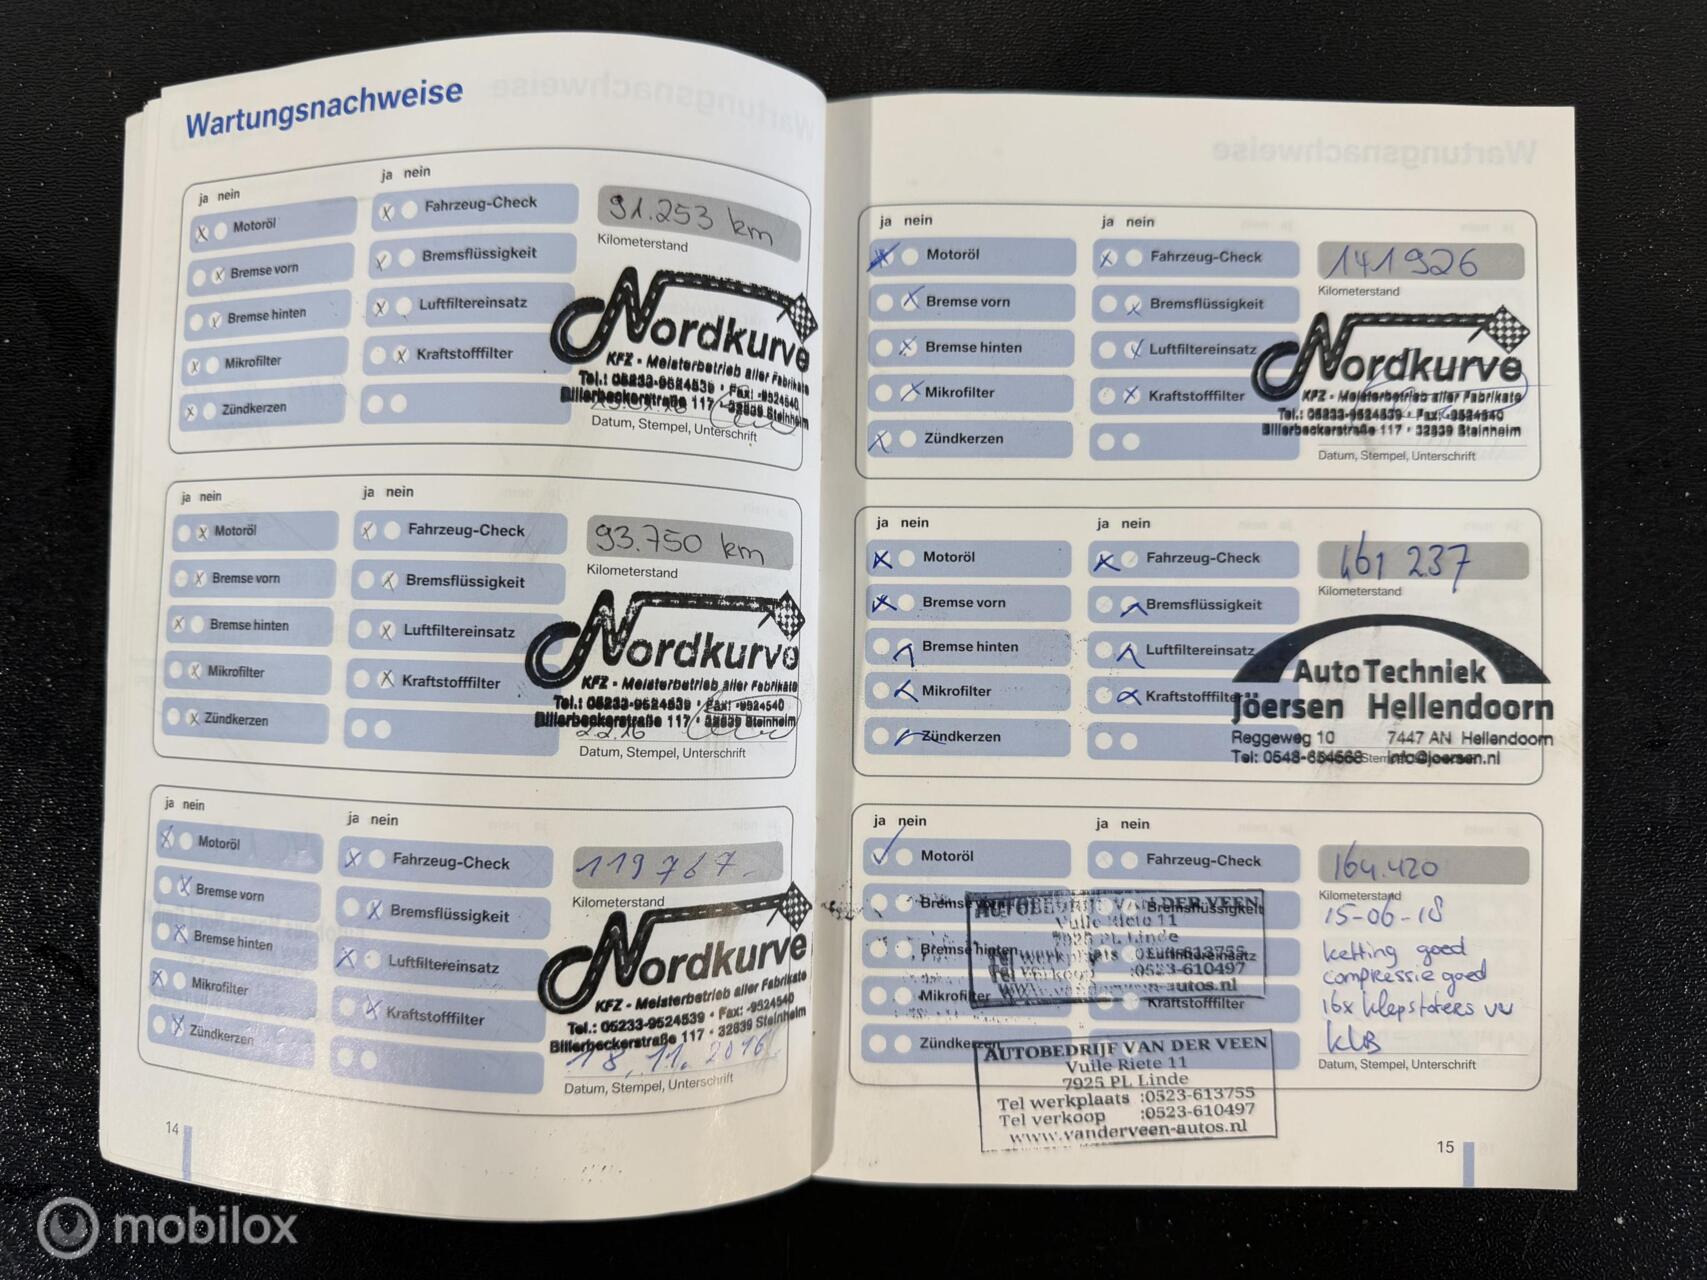 Wartungsnachweise
ja nein
ja nein
Motoröl
Fahrzeug-Check
91.253 km
Bremse vorn
Bremsflüssigkeit
Kilometerstand
Bremse hinten
Luftfiltereinsatz
Mikrofilter
Kraftstofffilter
Zündkerzen
Nordkurve
KFZ - Meisterbetrieb aller Fabrikate
Tel.: 05233-9524539 · Fax: -9524540
Billerbeckerstraße 117 · 32839 Steinheim
Datum, Stempel, Unterschrift
ja nein
ja nein
Motoröl
Fahrzeug-Check
93.750 km
Bremse vorn
Bremsflüssigkeit
Kilometerstand
Bremse hinten
Luftfiltereinsatz
Mikrofilter
Kraftstofffilter
Zündkerzen
Nordkurve
KFZ - Meisterbetrieb aller Fabrikate
Tel.: 05233-9524539 · Fax: -9524540
Billerbeckerstraße 117 · 32839 Steinheim
2.2.16
Datum, Stempel, Unterschrift
ja nein
ja nein
Motoröl
Fahrzeug-Check
119767
Bremse vorn
Bremsflüssigkeit
Kilometerstand
Bremse hinten
Luftfiltereinsatz
Mikrofilter
Kraftstofffilter
Zündkerzen
Nordkurve
KFZ - Meisterbetrieb aller Fabrikate
Tel.: 05233-9524539 · Fax: -9524540
Billerbeckerstraße 117 · 32839 Steinheim
18.11.2016
Datum, Stempel, Unterschrift
14
ja nein
ja nein
Motoröl
Fahrzeug-Check
141926
Bremse vorn
Bremsflüssigkeit
Kilometerstand
Bremse hinten
Luftfiltereinsatz
Mikrofilter
Kraftstofffilter
Zündkerzen
Nordkurve
KFZ - Meisterbetrieb aller Fabrikate
Tel.: 05233-9524539 · Fax: -9524540
Billerbeckerstraße 117 · 32839 Steinheim
Datum, Stempel, Unterschrift
ja nein
ja nein
Motoröl
Fahrzeug-Check
161 237
Bremse vorn
Bremsflüssigkeit
Kilometerstand
Bremse hinten
Luftfiltereinsatz
Mikrofilter
Kraftstofffilter
Zündkerzen
Auto Techniek
Jöersen Hellendoorn
Reggeweg 10 7447 AN Hellendoorn
Tel: 0548-654568 info@joersen.nl
ja nein
ja nein
Motoröl
Fahrzeug-Check
164.420
Bremse vorn
Bremsflüssigkeit
Kilometerstand
Bremse hinten
Luftfiltereinsatz
Mikrofilter
Kraftstofffilter
Zündkerzen
15-06-18
ketting goed
compressie goed
16x klepstoters vv
KLB
Datum, Stempel, Unterschrift
AUTOBEDRIJF VAN DER VEEN
Vuile Riete 11
7925 PL Linde
Tel werkplaats :0523-613755
Tel verkoop :0523-610497
www.vanderveen-autos.nl
AUTOBEDRIJF VAN DER VEEN
Vuile Riete 11
7925 PL Linde
Tel werkplaats :0523-613755
Tel verkoop :0523-610497
www.vanderveen-autos.nl
15
mobilox